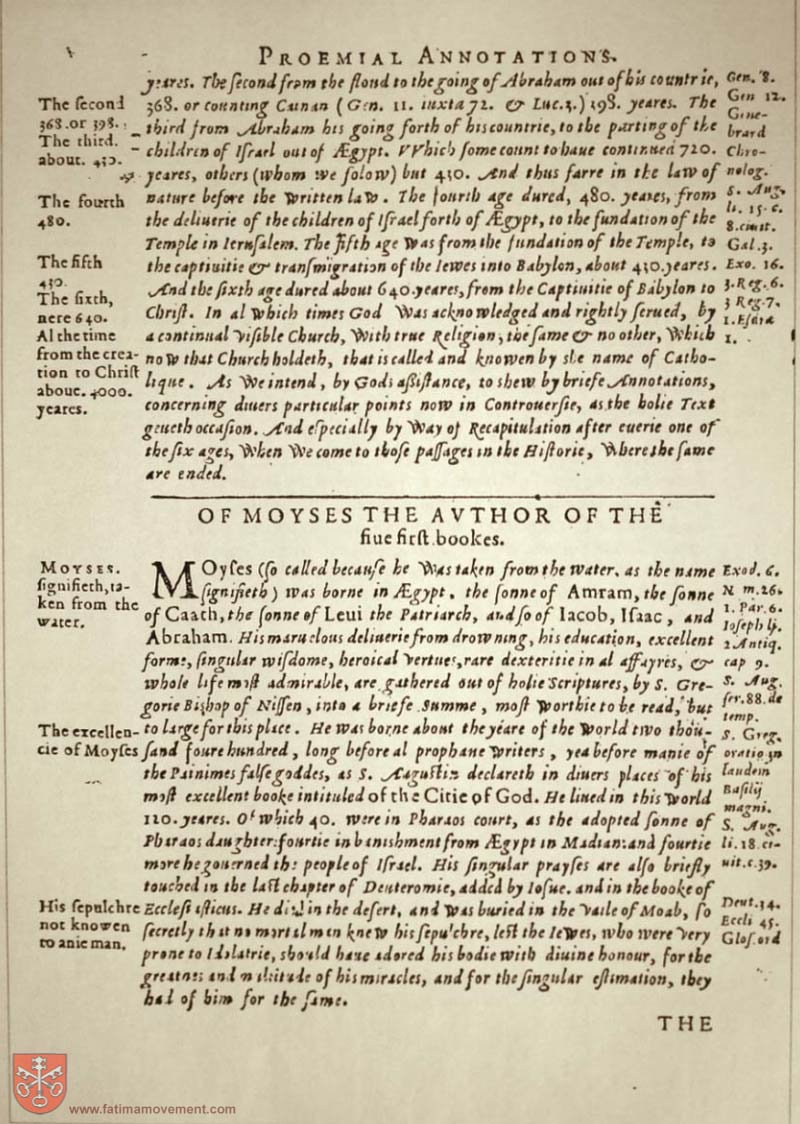 PROEMIAL ANNOTATIONS.
yeares. The ſecond from the floud to the going of Abraham out of his countrie,
368. or counting Cainan (Gen. 11. iuxta 72. & Luc. 3.) 398. yeares. The
third from Abraham his going forth of his countrie, to the parting of the
children of Iſrael out of Ægypt. VVhich ſome count to haue continued 720.
yeares, others (whom we folow) but 430. And thus farre in the law of
nature before the written law. The fourth age dured, 480. yeares, from
the deliuerie of the children of Iſrael forth of Ægypt, to the fundation of the
Temple in Ieruſalem. The fifth age was from the fundation of the Temple, to
the captiuitie & tranſmigration of the Iewes into Babylon, about 430. yeares.
And the ſixth age dured about 640. yeares, from the Captiuitie of Babylon to
Chriſt. In al which times God was acknowledged and rightly ſerued, by
a continual viſible Church, with true Religion, the ſame & no other, which
now that Church holdeth, that is called and knowen by the name of Catho-
lique. As we intend, by Gods aſsiſtance, to shew by briefe Annotations,
concerning diuers particular points now in Controuerſie, as the holie Text
geueth occaſion. And eſpecially by way of Recapitulation after euerie one of
the ſix ages, when we come to thoſe paſſages in the Hiſtorie, where the ſame
are ended.
The ſecond
368. or 398.
The third.
about. 430.
The fourth
480.
The fifth
430.
The ſixth,
nere 640.
Al the time
from the crea-
tion to Chriſt
about. 4000.
yeares.
Gen. 8.
Gen 12.
Gene-
brard
Chro-
nolog.
S. Aug.
li. 15. c.
8. ciuit.
Gal. 3.
Exo. 16.
3. Reg. 6.
3 Reg. 7.
1. Eſdræ
1.
OF MOYSES THE AVTHOR OF THE
fiue firſt bookes.
MOyſes (ſo called becauſe he was taken from the water, as the name
ſignifieth) was borne in Ægypt, the ſonne of Amram, the ſonne
of Caath, the ſonne of Leui the Patriarch, and ſo of Iacob, Iſaac, and
Abraham. His maruelous deliuerie from drowning, his education, excellent
forme, ſingular wiſdome, heroical vertues, rare dexteritie in al affayres, &
whole life moſt admirable, are gathered out of holie Scriptures, by S. Gre-
gorie Bishop of Niſſen, into a briefe Summe, moſt worthie to be read, but
to large for this place. He was borne about the yeare of the world two thou-
ſand foure hundred, long before al prophane writers, yea before manie of
the Painimes falſe goddes, as S. Auguſtin declareth in diuers places of his
moſt excellent booke intituled of the Citie of God. He liued in this world
120. yeares. Of which 40. were in Pharaos court, as the adopted ſonne of
Pharaos daughter: fourtie in banishment from Ægypt in Madian: and fourtie
more he gouerned the people of Iſrael. His ſingular prayſes are alſo briefly
touched in the laſt chapter of Deuteromie, added by Ioſue. and in the booke of
Eccleſiaſticus. He died in the deſert, and was buried in the Vaile of Moab, ſo
ſecretly that no mortal man knew his ſepulchre, leſt the Iewes, who were very
prone to Idolatrie, should haue adored his bodie with diuine honour, for the
greatnes and multitude of his miracles, and for the ſingular eſtimation, they
had of him for the ſame.
MOYSES.
ſignifieth, ta-
ken from the
water.
The excellen-
cie of Moyſes
His ſepulchre
not knowen
to anie man.
Exod. 6.
Num. 26.
1. Par. 6.
Ioſeph li.
2 Antiq.
cap 9.
S. Aug.
ſer. 88. de
temp.
S. Greg.
oratio in
laudem
Baſilij
magni.
S. Aug.
li. 18. ci-
uit. c. 39.
Deut. 34.
Eccli 45.
Gloſ. ord
THE
www.fatimamovement.com